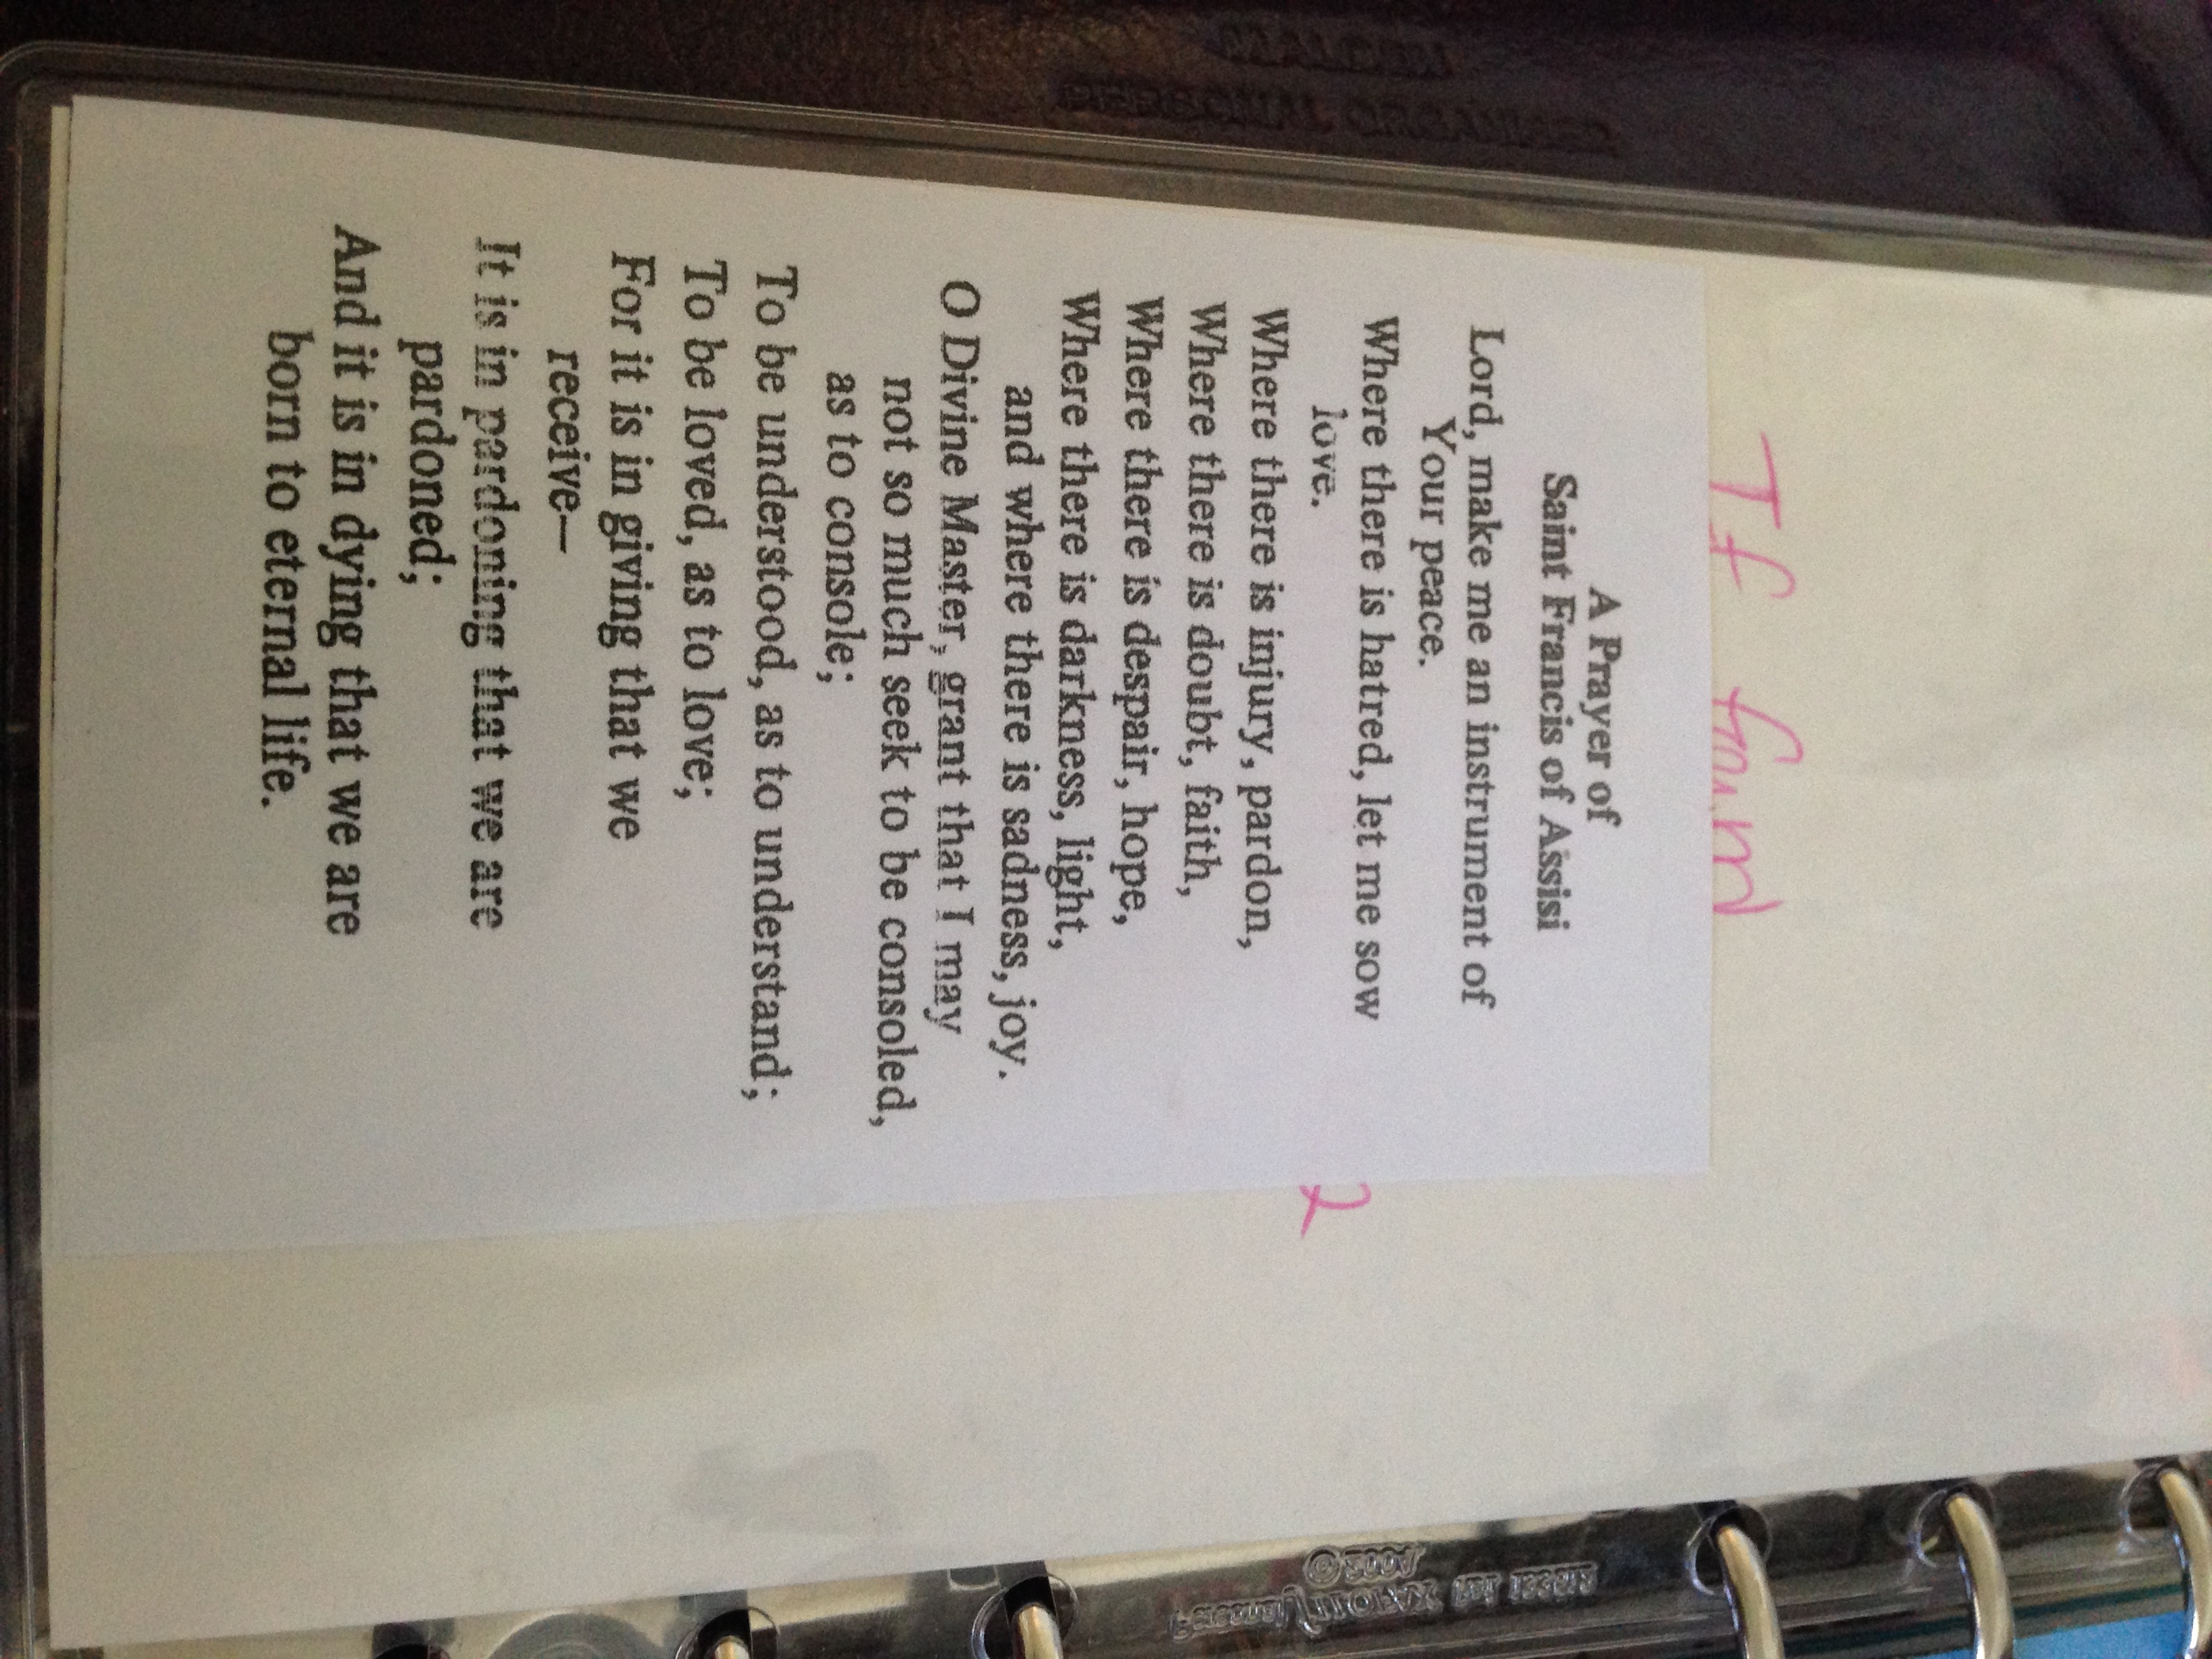 MALDEN
PERSONAL ORGANISER
If found
A Prayer of
Saint Francis of Assisi
Lord, make me an instrument of
Your peace.
Where there is hatred, let me sow
love.
Where there is injury, pardon,
Where there is doubt, faith,
Where there is despair, hope,
Where there is darkness, light,
and where there is sadness, joy.
O Divine Master, grant that I may
not so much seek to be consoled,
as to console;
To be understood, as to understand;
To be loved, as to love;
For it is in giving that we
receive—
It is in pardoning that we are
pardoned;
And it is in dying that we are
born to eternal life.